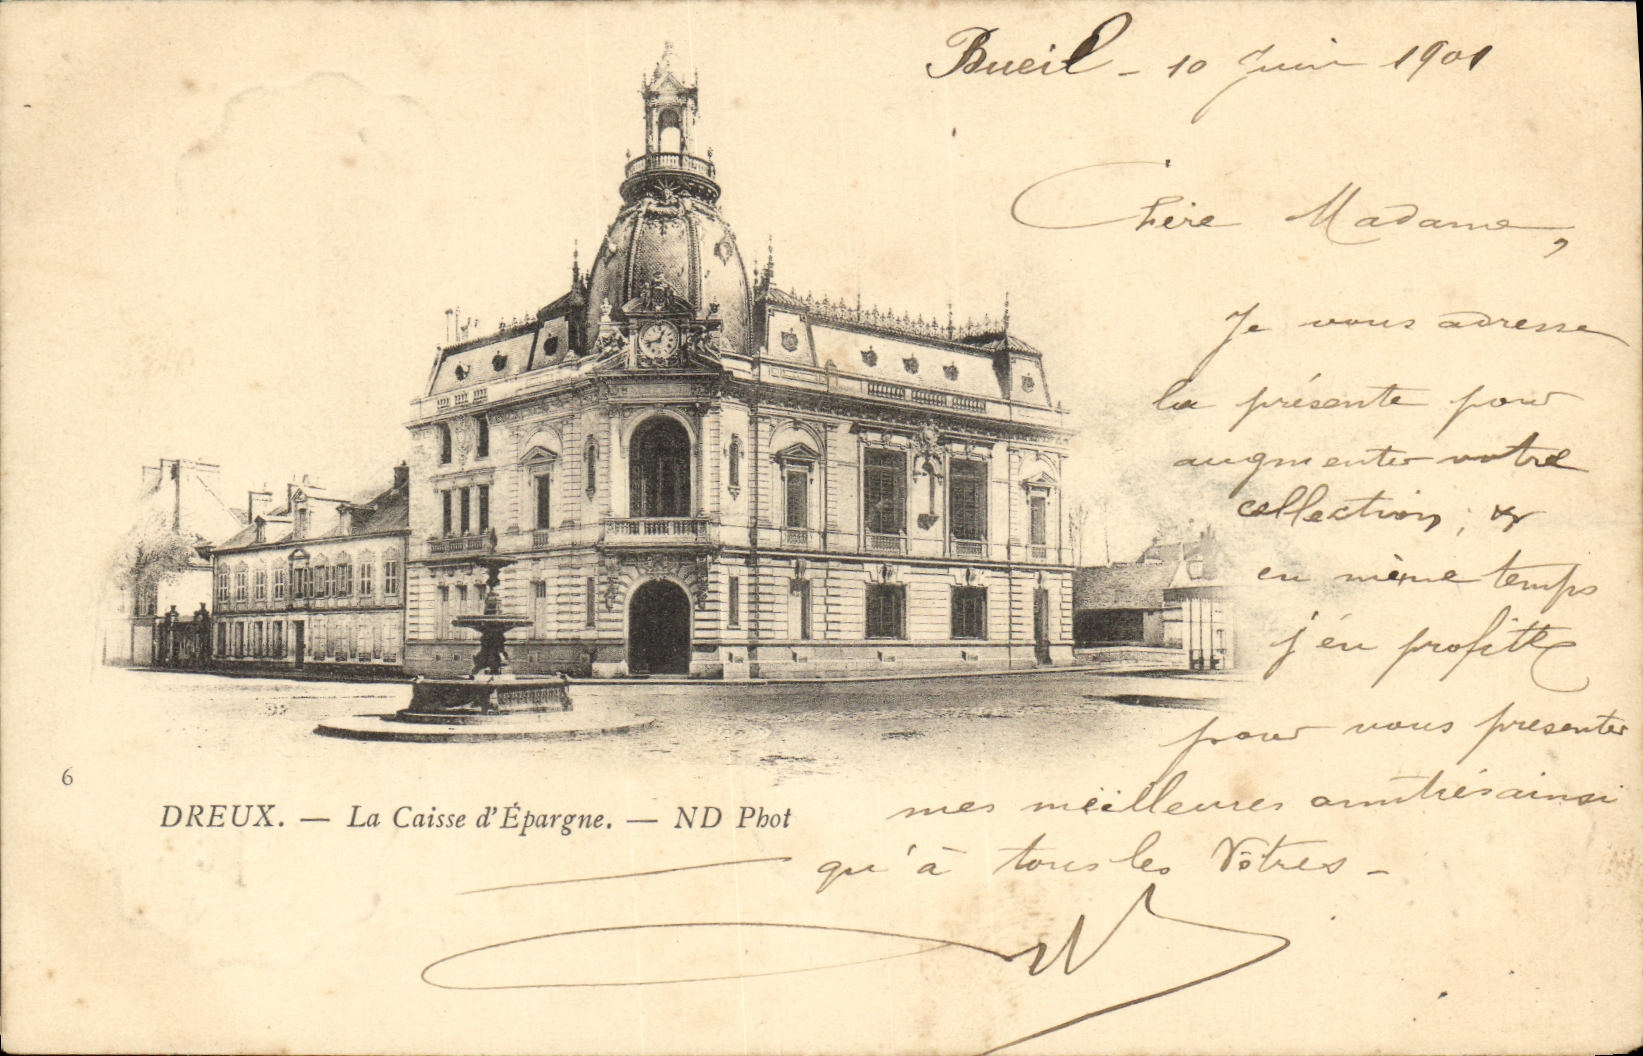 Bueil - 10 Juin 1901
Chère Madame,
Je vous adresse
la présente pour
augmenter votre
collection, &
en même temps
j'en profitte
pour vous présenter
mes meilleures amitiés ainsi
qu'à tous les Vôtres -
6
DREUX. — La Caisse d'Épargne. — ND Phot